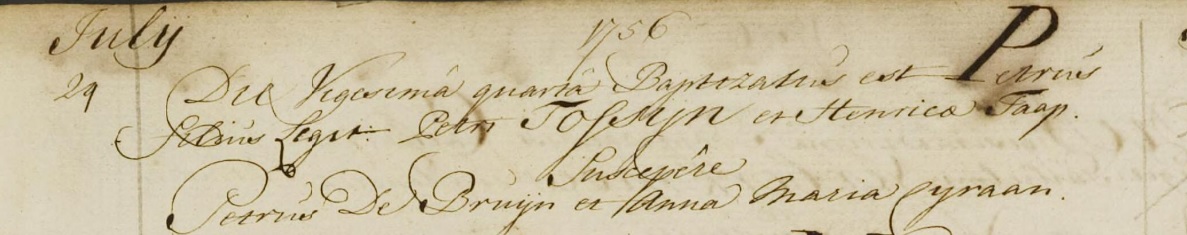 July 1756
24 Die Vigesimâ quartâ Baptizatus est Petrus
Filius Legit: Petri Tossijn et Henricæ Taap.
Suscepêre
Petrus De Bruijn et Anna Maria Cyraan.